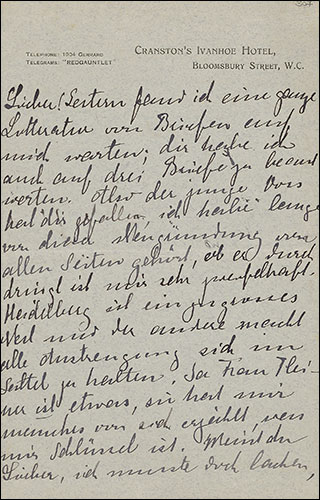 Telephone: 1034 Gerrard
Telegrams: "Redgauntlet"
Cranston's Ivanhoe Hotel,
Bloomsbury Street, W.C.
Lieber! Gestern fand ich eine ganze
Litteratur von Briefen auf
mich warten; dir habe ich
auch auf drei Briefe zu beant
worten. Also der junge
hat dir gefallen, ich hatte lange
von dieser Neugründung von
allen Seiten gehört, ob er durch
dringt ist mir sehr zweifelhaft.
Heidelberg ist ein zu grosses
Nest und der andere macht
alle Anstrengung sich im
Sattel zu halten. Ja Frau
ist etwas, sie hat mir
manches von sich erzählt, was
mir Schlüssel ist. Meinst du
Lieber, ich musste doch lachen,